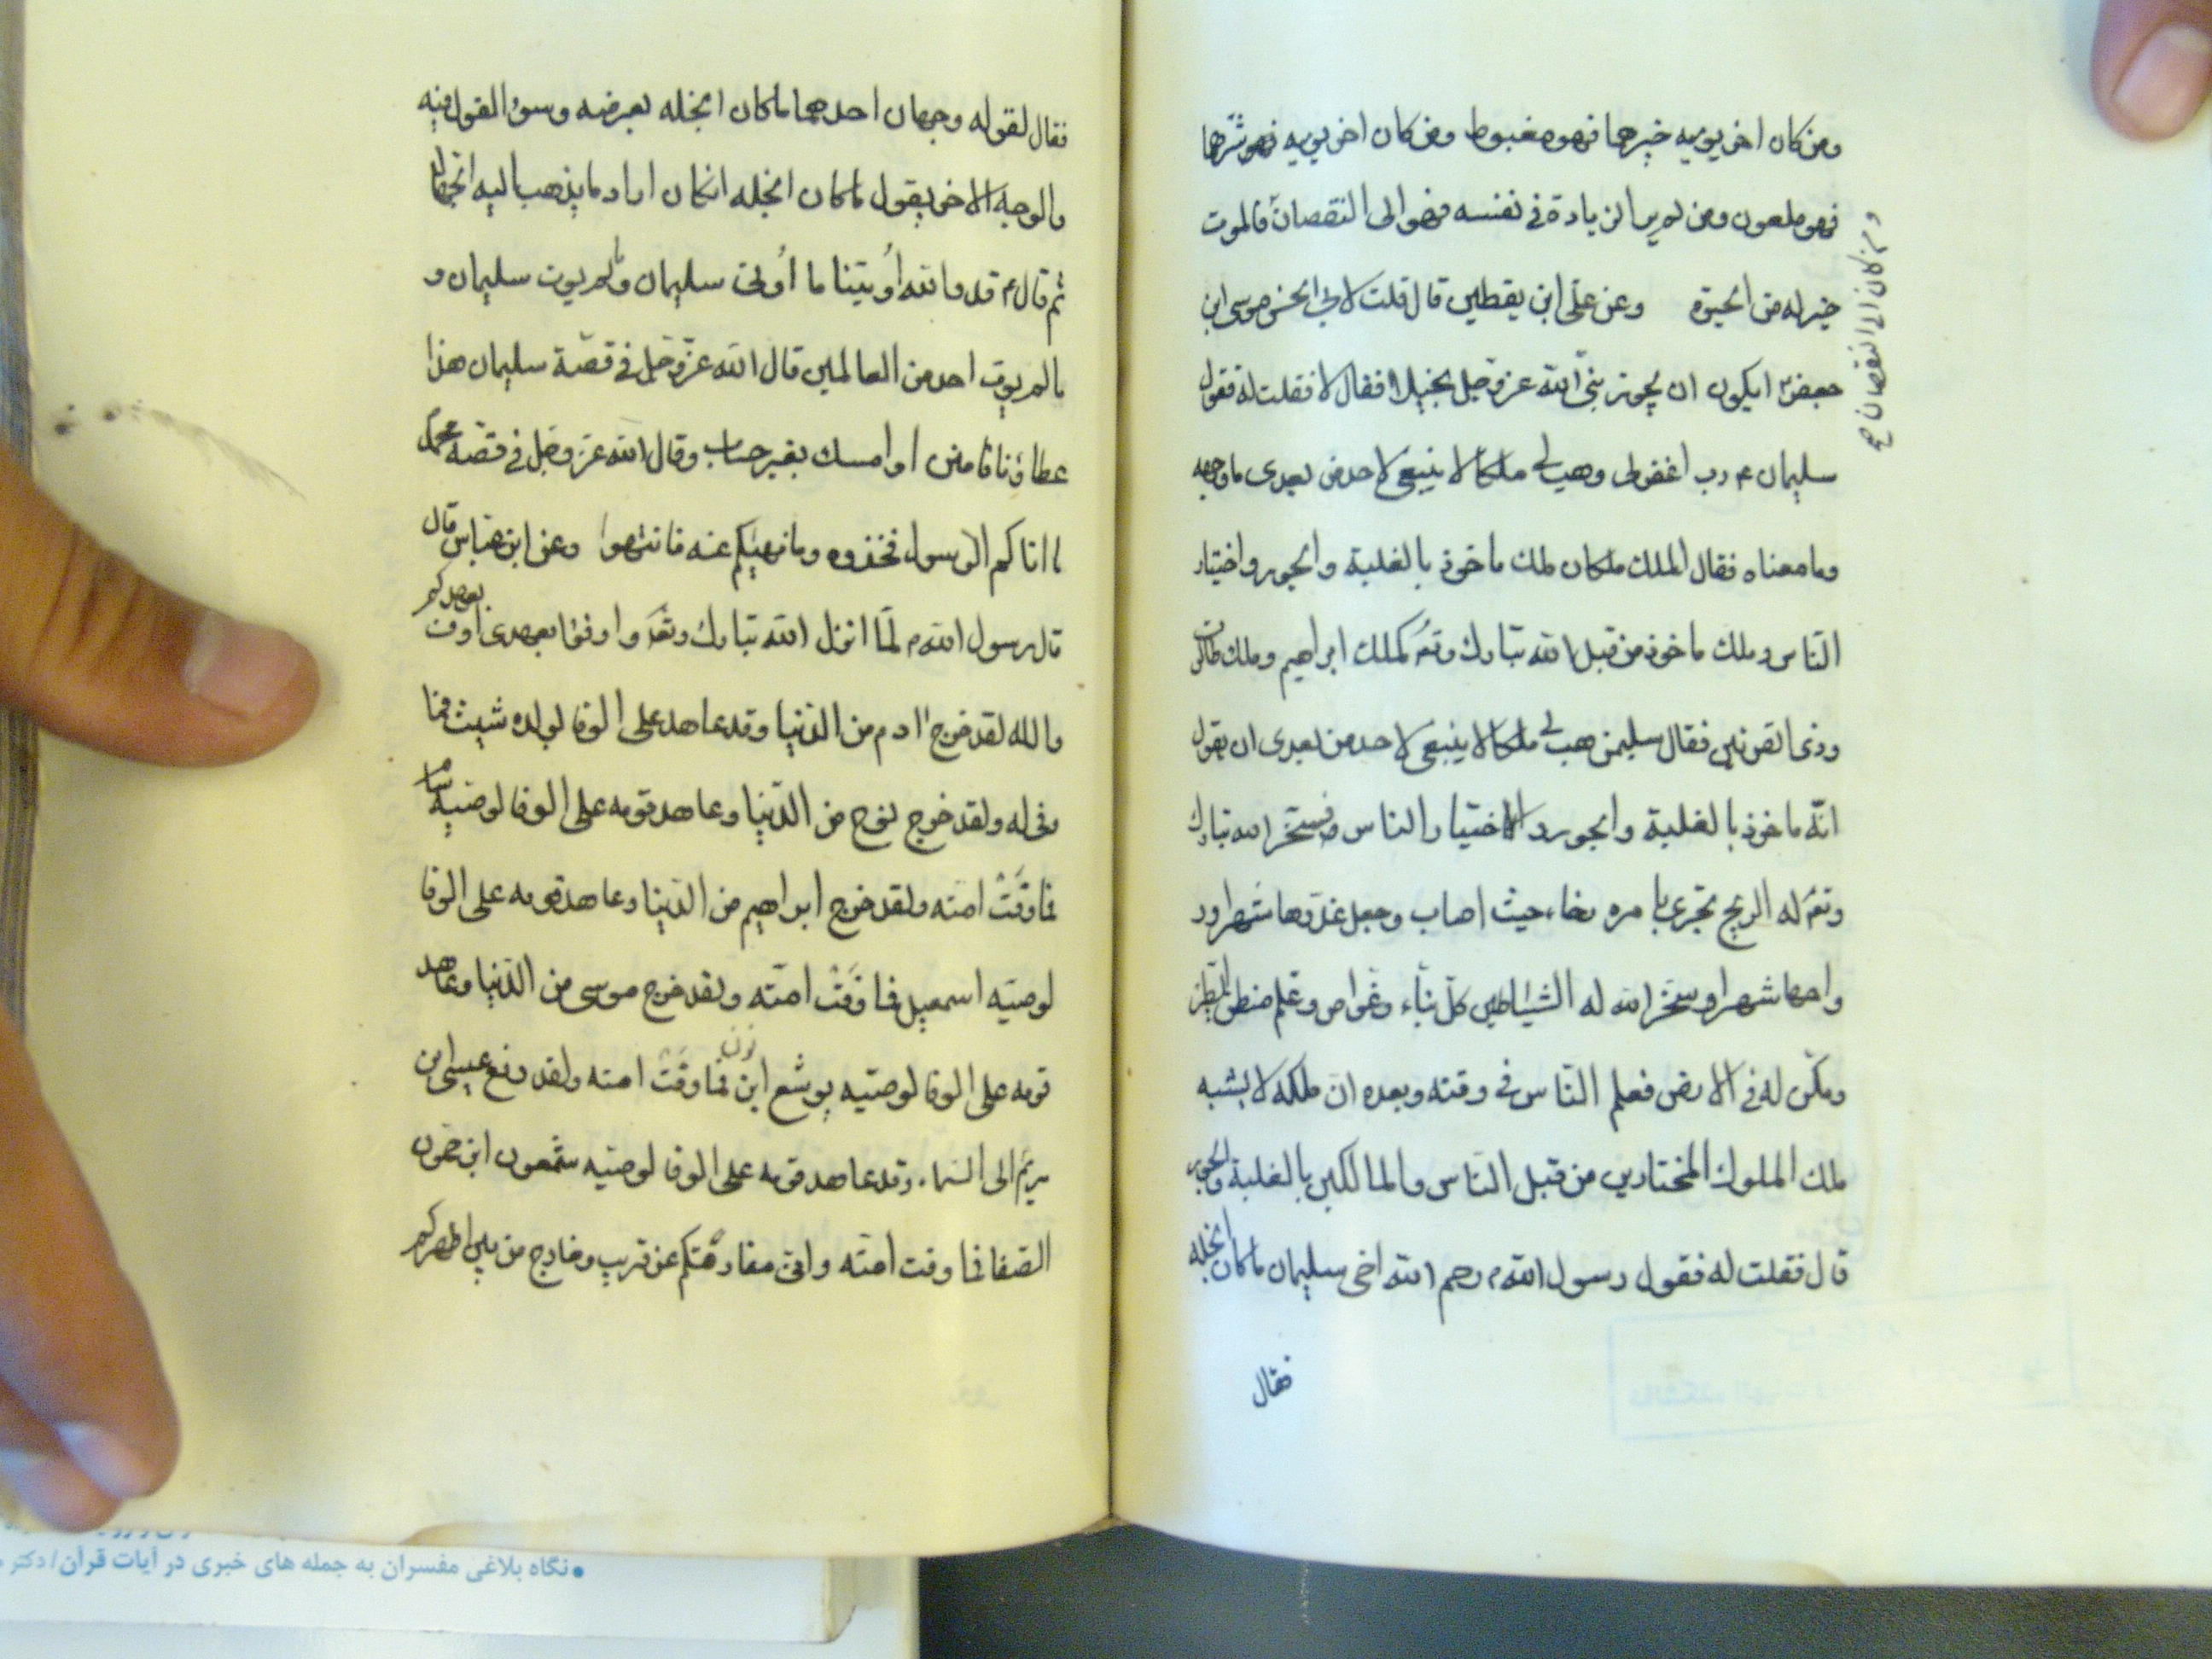 ومن كان اخر يوميه خيرهما فهو مغبوط ومن كان اخر يوميه فهو شرهما
فهو ملعون ومن لم ير الزيادة في نفسه فهو الى النقصان فالموت
ومن كان الى النقصان صح
خير له من الحيوة وعن علي ابن يقطين قال قلت لابي الحسن موسى ابن
جعفر ايكون ان يجوز نبي الله عز وجل بخيلا فقال لا فقلت له فقول
سليمان ع رب اغفر لي وهب لي ملكا لا ينبغي لاحد من بعدي ما وجهه
وما معناه فقال الملك ملكان ملك ماخوذ بالغلبة والجور واختيار
الناس وملك ماخوذ من قبل الله تبارك وتع كملك ابراهيم وملك طالوت
وذي القرنين فقال سليمن هب لي ملكا لا ينبغي لاحد من بعدي ان يقول
انه ماخوذ بالغلبة والجور والاختيار الناس فسخر الله تبارك
وتع له الريح تجري بامره رخاء حيث اصاب وجعل غدوها شهرا ور
واحها شهرا وسخر الله له الشياطين كل بناء وغواص وعلم منطق الطير
ومكن له في الارض فعلم الناس في وقته وبعده ان ملكه لا يشبه
ملك الملوك المختارين من قبل الناس والمالكين بالغلبة والجور
قال فقلت له فقول رسول الله ص رحم الله اخي سليمان ما كان ابخله
فقال
فقال لقوله وجهان احدهما ما كان ابخله بعرضه وسوء القول فيه
والوجه الاخر يقول ما كان ابخله ان كان اراد ما يذهب اليه الجهال
ثم قال ع قد والله اوتينا ما اوتى سليمان وما لم يوت سليمان و
ما لم يوت احد من العالمين قال الله عز وجل في قصة سليمان هذا
عطاؤنا فامنن او امسك بغير حساب وقال الله عز وجل في قصة محمد
ما اتاكم الرسول فخذوه وما نهيكم عنه فانتهوا وعن ابن عباس قال
قال رسول الله ص لما انزل الله تبارك وتع واوفوا بعهدي اوف بعهدكم
والله لقد خرج ادم من الدنيا وقد عاهد على الوفا لولده شيث فما
وفى له ولقد خرج نوح من الدنيا وعاهد قومه على الوفا لوصيه سام
فما وفت امته ولقد خرج ابراهيم من الدنيا وعاهد قومه على الوفا
لوصيه اسمعيل فما وفت امته ولقد خرج موسى من الدنيا وعاهد
قومه على الوفا لوصيه يوشع ابن نون فما وفت امته ولقد رفع عيسى ابن
مريم الى السماء وقد عاهد قومه على الوفا لوصيه شمعون ابن حمون
الصفا فما وفت امته واني مفارقكم عن قريب وخارج من بين اظهركم
•نگاه بلاغی مفسران به جمله های خبری در آیات قرآن/دکتر